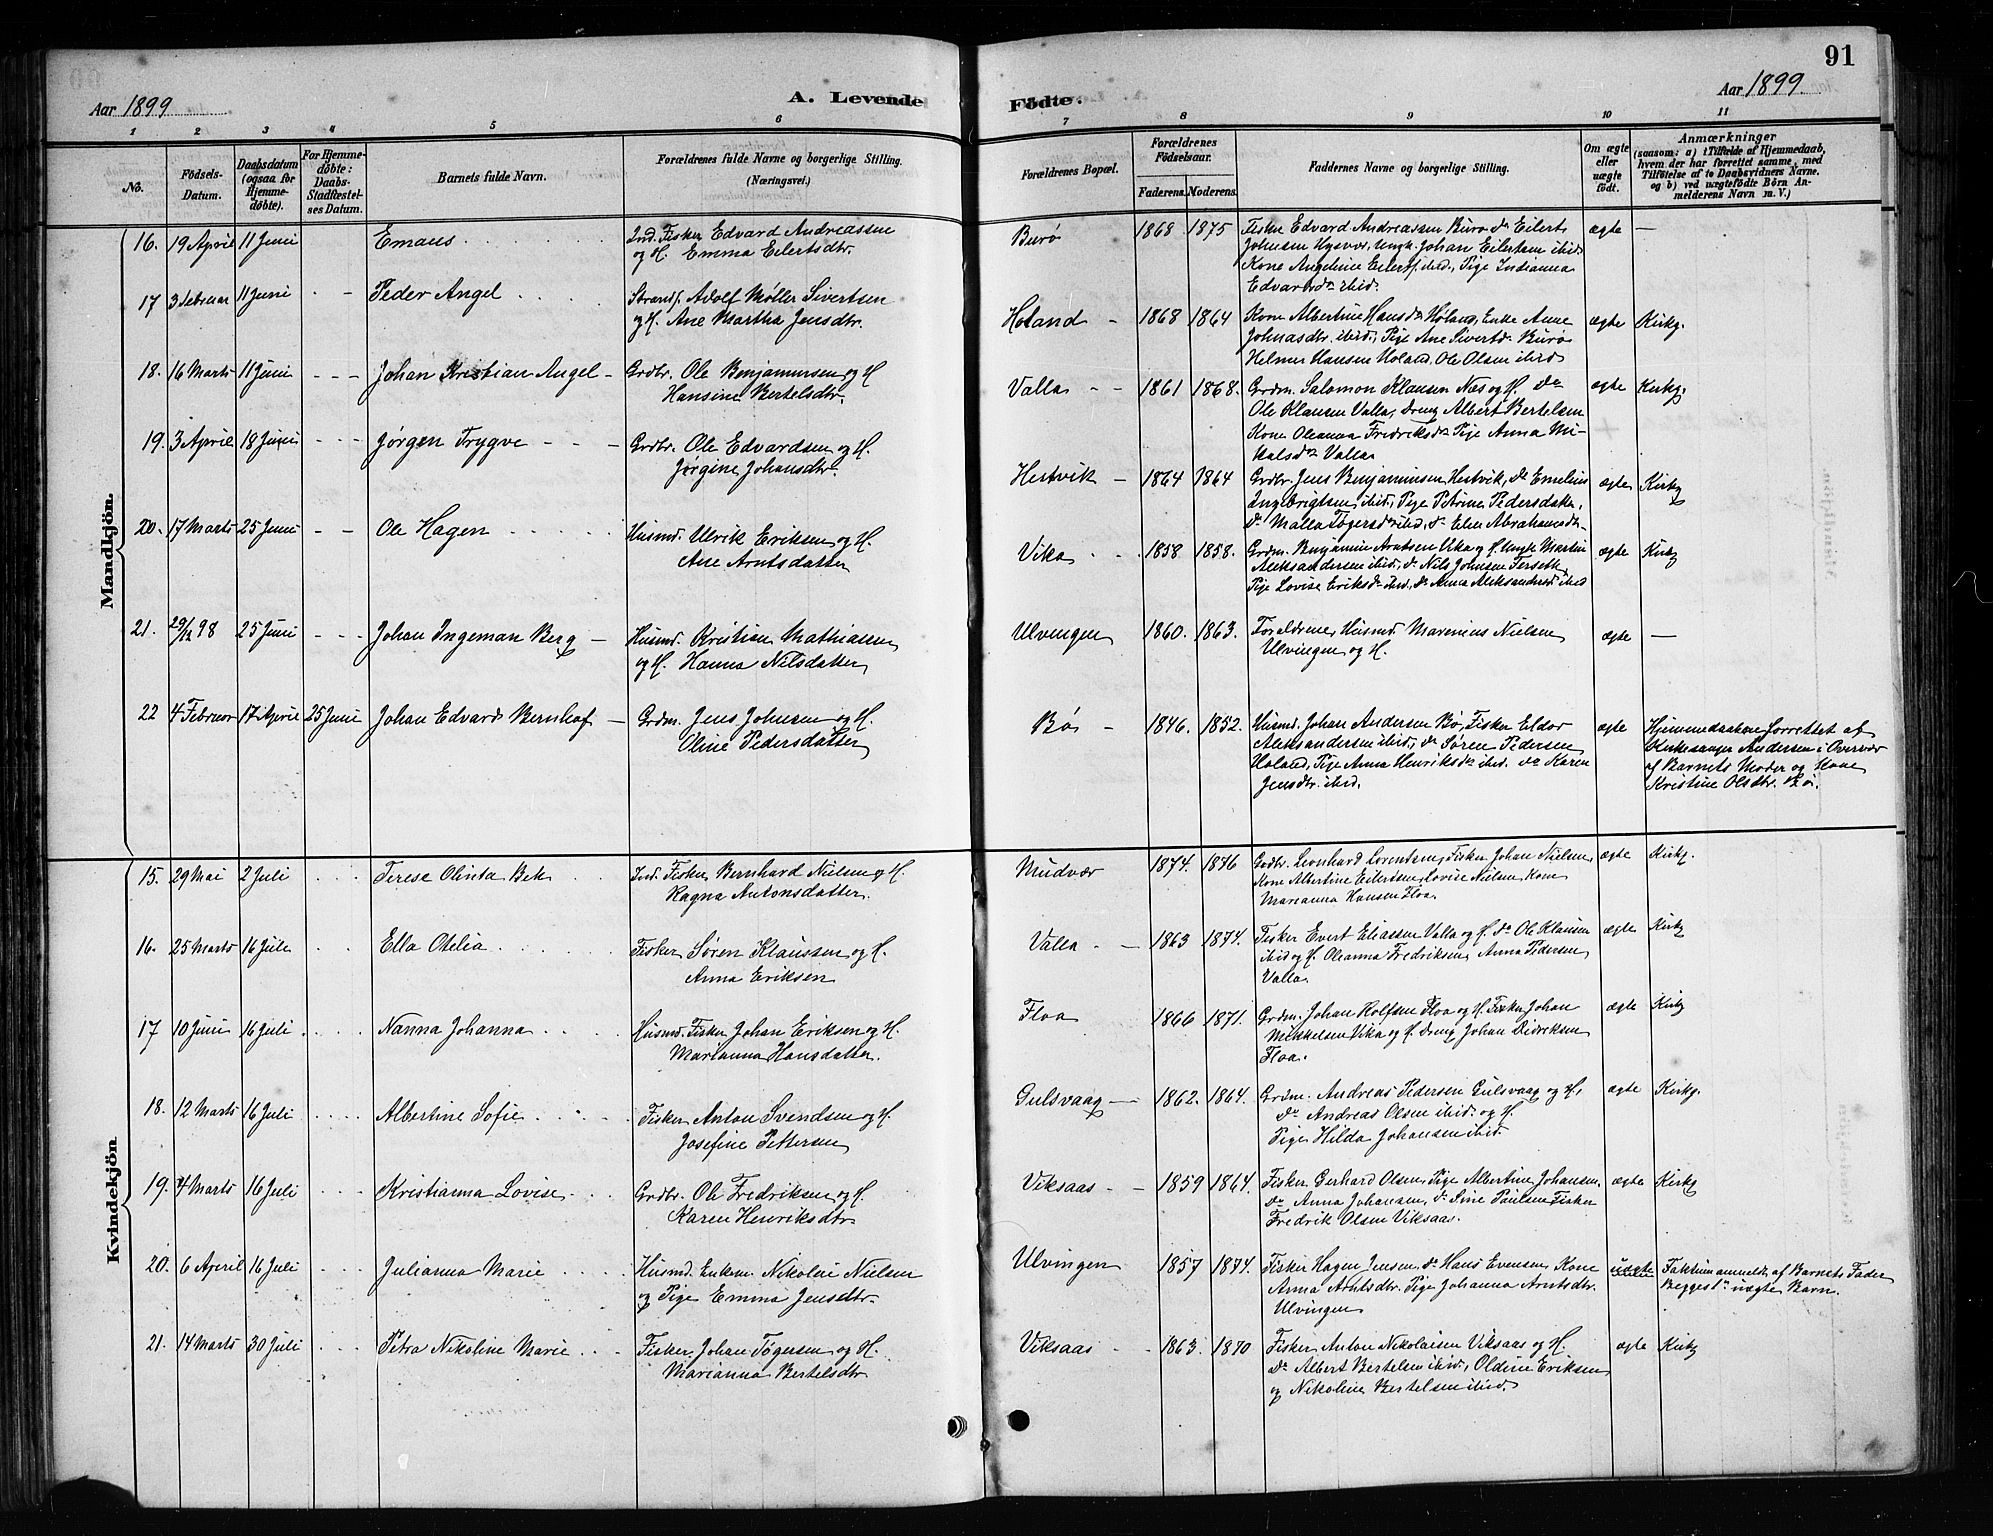 91
Aar 1899
A. Levende
Fødte.
Aar 1899.
1 2 3 4 5 6 7 8 9 10 11
No.
Fødsels-
Datum.
Daabsdatum
(ogsaa for
Hjemme-
døbte).
For Hjemme-
døbte:
Daabs-
Stadfæstel-
ses Datum.
Barnets fulde Navn.
Forældrenes fulde Navne og borgerlige Stilling.
(Næringsvei.)
Forældrenes Bopæl.
Forældrenes
Fødselsaar.
Faderens. Moderens.
Faddernes Navne og borgerlige Stilling.
Om ægte
eller
uægte
født.
Anmærkninger
(saasom: a) i Tilfælde af Hjemmedaab,
hvem der har forrettet samme, med
Tilføielse af to Daabsvidners Navne.
og b) ved uægtefødte Børn An-
melderens Navn m. V.)
Mandkjön.
16. 19 April 11 Juni Emaus Ind. Fisker Edvard Andreassen
og H. Emma Eilertsdtr.
Burø 1868 1875 Fisker Edvard Andreassen Burø, do Eilert
Johnsen Ungk. Johan Eilertsen ibid.
Kone Angeline Eilerts. ibid., Pige Indianna
Edvardsdr ibid.
ægte —
17 3 Februar 11 Juni Peder Angel Strands. Adolf Møller Sivertsen
og H. Ane Martha Jensdtr.
Holand 1868 1864 Kone Albertine Hansdr Holand, Enke Anne
Johnasdtr. ibid., Pige Ane Sivertsd. Burø
Helmer Hansen Holand, Ole Olsen ibid
ægte Kirkg.
18. 16 Marts 11 Juni Johan Kristian Angel Grdbr. Ole Benjaminsen og H
Hansine Bertelsdtr.
Valla 1861 1868. Grdm. Salomon Klausen Næs og H. do
Ole Klausen Valla, dreng Albert Bertelsen
Kone Oleanna Fredriksdr Pige Anna Mi-
kalsdr Valla
ægte Kirkg.
19. 3 April 18 Juni Jørgen Trygve Grdbr. Ole Edvardsen og H.
Jørgine Johansdtr.
Hestvik 1864 1864 Grdbr. Jens Benjaminsen Hestvik, do Emelius
Ingebrigtsen ibid., Pige Petrine Pedersdatter,
do Malla Tøgersdr ibid, do Elen Abrahamsdr
ægte Kirkg
20. 17 Marts 25 Juni Ole Hagen Husmd. Ulrik Eriksen og H.
Ane Arntsdatter
Vika 1858 1858. Grdm. Benjamin Arntsen Vika og H. Ungk. Martin
Aleksandersen ibid., do Nils Johnsen Forseth
Pige Lovise Eriksdr ibid, do Anna Aleksandersd ibid
ægte Kirkg
21. 29/12 98 25 Juni Johan Ingeman Berg Husmd. Kristian Mathiassen
og H. Hanna Nilsdatter
Ulvingen 1860. 1863. Forældrene, Husmd Marenius Nielsen
Ulvingen og H.
ægte —
22 4 Februar 17 April 25 Juni Johan Edvard Bernhof Grdm. Jens Johnsen og H.
Oline Pedersdatter
Bø 1846. 1852. Husmd. Johan Andersen Bø, Fisker Eldor
Aleksandersen ibid., do Søren Pedersen
Holand, Pige Anna Henriksdr ibid. do Karen
Jensdtr. ibid.
ægte Hjemmedaaben forrettet af
Kirkesanger Andersen i Overvær
af Barnets Moder og Kone
Kristine Olsdtr. Bø.
Kvindekjön
15. 29 Mai 2 Juli Terese Olivia Bek Ind. Fisker Bernhard Nielsen og H.
Ragna Antonsdatter
Mudvær 1874. 1876 Grdbr. Leonhard Lorentsen, Fisker Johan Nielsen,
Kone Albertine Eilertsen, Lovise Nielsen, Kone
Marianna Hansen Floa.
ægte Kirkg.
16. 25 Marts 16 Juli Ella Otelia Fisker Søren Klaussen og H.
Anna Eriksen
Valla 1863 1874. Fisker Evert Eliassen Valla og H. do Ole Klausen
ibid og H. Oleanna Fredriksen, Anna Pedersen
Valla.
ægte Kirkg
17 10 Juni 16 Juli Nanna Johanna Husmd. Fisker Johan Eriksen og H.
Marianna Hansdatter
Floa 1866 1871. Grdm. Johan Rolfsen Floa og H. Fisker Johan
Mikkelsen Vika og H. Dreng Johan Didriksen
Floa.
ægte Kirkg
18. 12 Marts 16 Juli Albertine Sofie Fisker Anton Svendsen og H.
Josefine Pettersen
Gulsvaag 1862. 1864. Grdm. Andreas Pedersen Gulsvaag og H.
do Andreas Olsen ibid. og H
Pige Hilda Johansen ibid.
ægte Kirkg.
19. 4 Marts 16 Juli Kristianna Lovise Grdbr. Ole Fredriksen og H.
Karen Henriksdtr
Viksaas 1859 1864. Fisker Gerhard Olsen, Pige Albertine Johansen.
do Anna Johansen, do Sine Paulsen Fisker
Fredrik Olsen Viksaas.
ægte Kirkg
20. 6 April 16 Juli Julianna Marie Husmd. Enkem. Nikolai Nielsen
og Pige Emma Jensdtr.
Ulvingen 1857 1874. Fisker Hagen Jensen, do Hans Evensen, Kone
Anna Arntsdtr. Pige Johanna Arntsdtr.
Ulvingen
uægte Faktum anmeldt af Barnets Fader
Begges 1ste uægte Barn.
21. 14 Marts 30 Juli Petra Nikoline Marie Fisker Johan Tøgersen og H.
Marianna Bertelsdtr
Viksaas 1863. 1870 Fisker Anton Nikolaisen Viksaas og H.
do Albert Bertelsen ibid., Oldine Eriksen
og Nikoline Bertelsen ibid.
ægte Kirkg